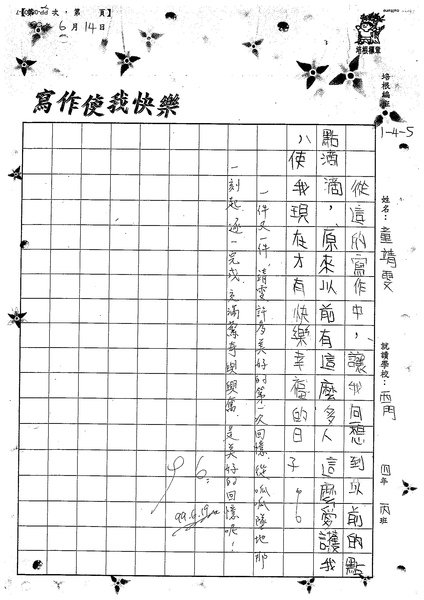 第 次，第 頁
6月14日
培根編章
寫作使我快樂
培根編班
1-4-5
姓名：童靖雯
就讀學校：西門 四年 丙班
從這的寫作中，讓我回想到以前的點
點滴滴，原來以前有這麼多人這麼愛護我
，使我現在才有快樂幸福的日子
96
一件又一件，靖雯許多美好的第一次回憶，從呱呱墜地那
一刻起，逐一完成，充滿驚奇與興奮，是美好的回憶呢！
96